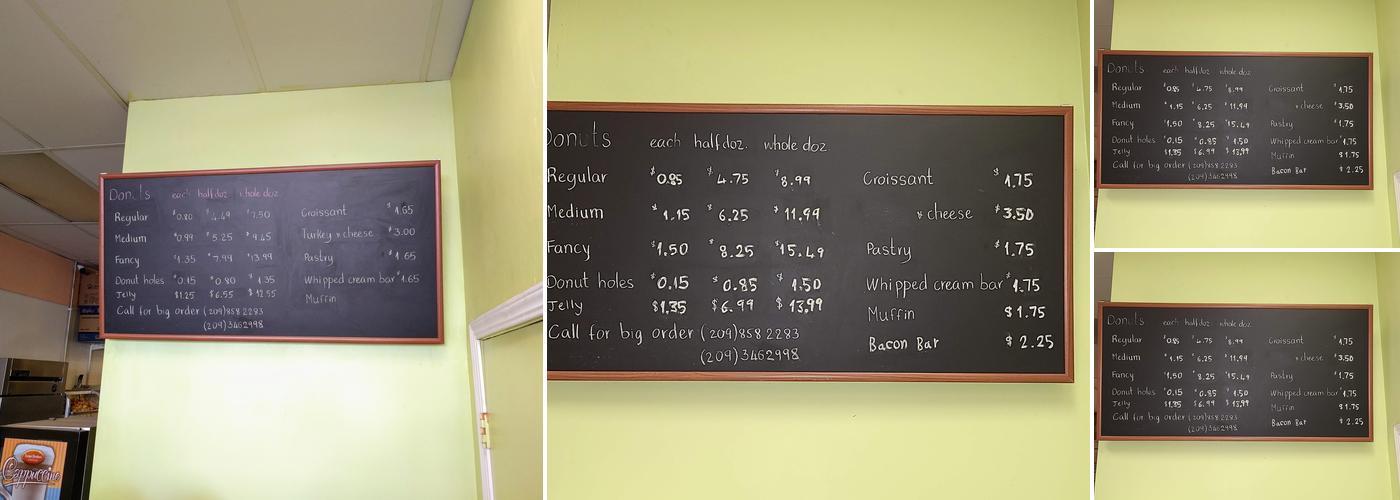 Donuts each half doz. whole doz
Regular $0.80 $4.49 $7.50
Medium $0.99 $5.25 $9.45
Fancy $1.35 $7.99 $13.99
Donut holes $0.15 $0.80 $1.35
Jelly $1.25 $6.55 $12.55
Call for big order (209)858 2283
(209)3462998
Croissant $1.65
Turkey & cheese $3.00
Pastry $1.65
Whipped cream bar $1.65
Muffin
Cappuccino
Donuts each half doz. whole doz.
Regular $0.85 $4.75 $8.99
Medium $1.15 $6.25 $11.99
Fancy $1.50 $8.25 $15.49
Donut holes $0.15 $0.85 $1.50
Jelly $1.35 $6.99 $13.99
Call for big order (209)858 2283
(209)3462998
Croissant $1.75
& cheese $3.50
Pastry $1.75
Whipped cream bar $1.75
Muffin $1.75
Bacon Bar $2.25
Donuts each half doz. whole doz.
Regular $0.85 $4.75 $8.99
Medium $1.15 $6.25 $11.99
Fancy $1.50 $8.25 $15.49
Donut holes $0.15 $0.85 $1.50
Jelly $1.35 $6.99 $13.99
Call for big order (209)858 2283
(209)3462998
Croissant $1.75
& cheese $3.50
Pastry $1.75
Whipped cream bar $1.75
Muffin $1.75
Bacon Bar $2.25
Donuts each half doz. whole doz.
Regular $0.85 $4.75 $8.99
Medium $1.15 $6.25 $11.99
Fancy $1.50 $8.25 $15.49
Donut holes $0.15 $0.85 $1.50
Jelly $1.35 $6.99 $13.99
Call for big order (209)858 2283
(209)3462998
Croissant $1.75
& cheese $3.50
Pastry $1.75
Whipped cream bar $1.75
Muffin $1.75
Bacon Bar $2.25